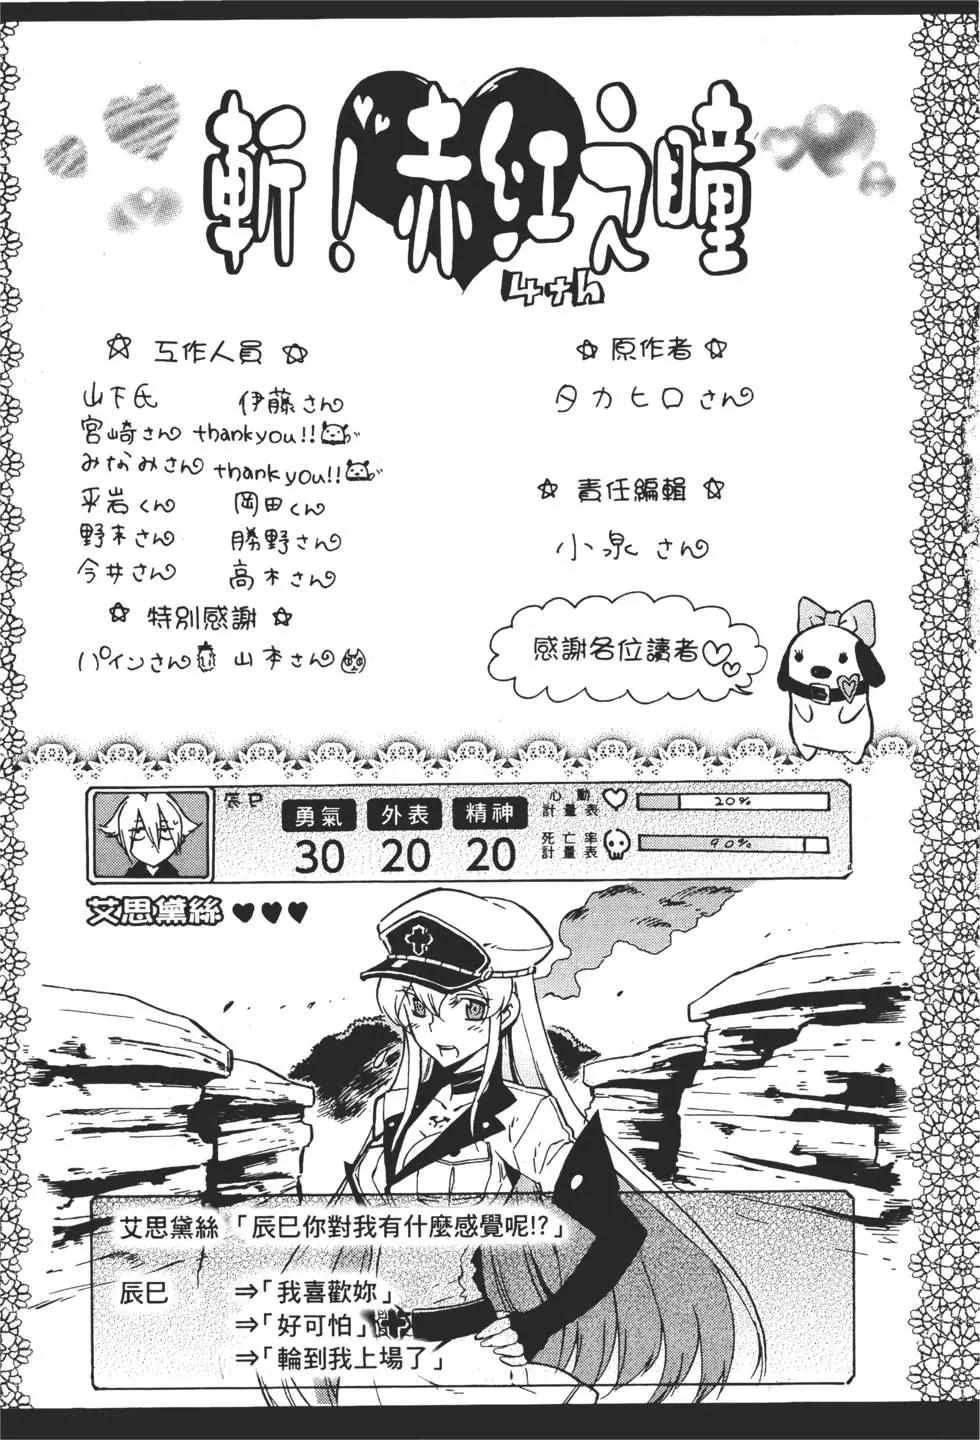 斬！赤紅之瞳
4th
☆ 工作人員 ☆
山下氏 伊藤さん
宮崎さん thank you!!
みなみさん thank you!!
平岩くん 岡田くん
野木さん 勝野さん
今井さん 高木さん
☆ 特別感謝 ☆
パインさん 山本さん
☆ 原作者 ☆
タカヒロさん
☆ 責任編輯 ☆
小泉さん
感謝各位讀者♡♡
辰巳
勇氣 外表 精神
30 20 20
心動計量表 20%
死亡率計量表 90%
艾思黛絲 ♥♥♥
艾思黛絲「辰巳你對我有什麼感覺呢!?」
辰巳 ⇒「我喜歡妳」
⇒「好可怕」
⇒「輪到我上場了」